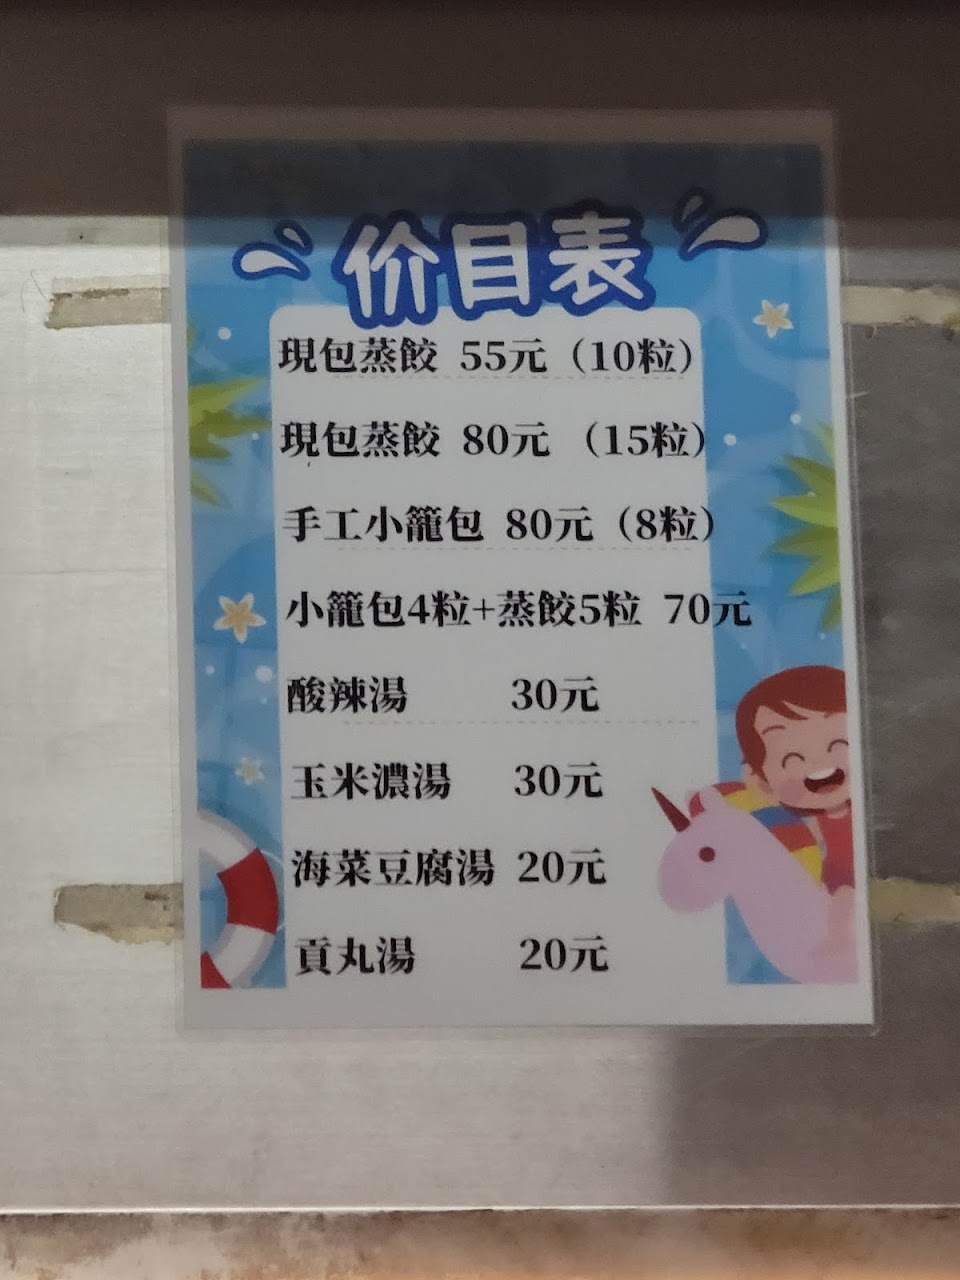 价目表
現包蒸餃 55元（10粒）
現包蒸餃 80元 （15粒）
手工小籠包 80元（8粒）
小籠包4粒+蒸餃5粒 70元
酸辣湯 30元
玉米濃湯 30元
海菜豆腐湯 20元
貢丸湯 20元